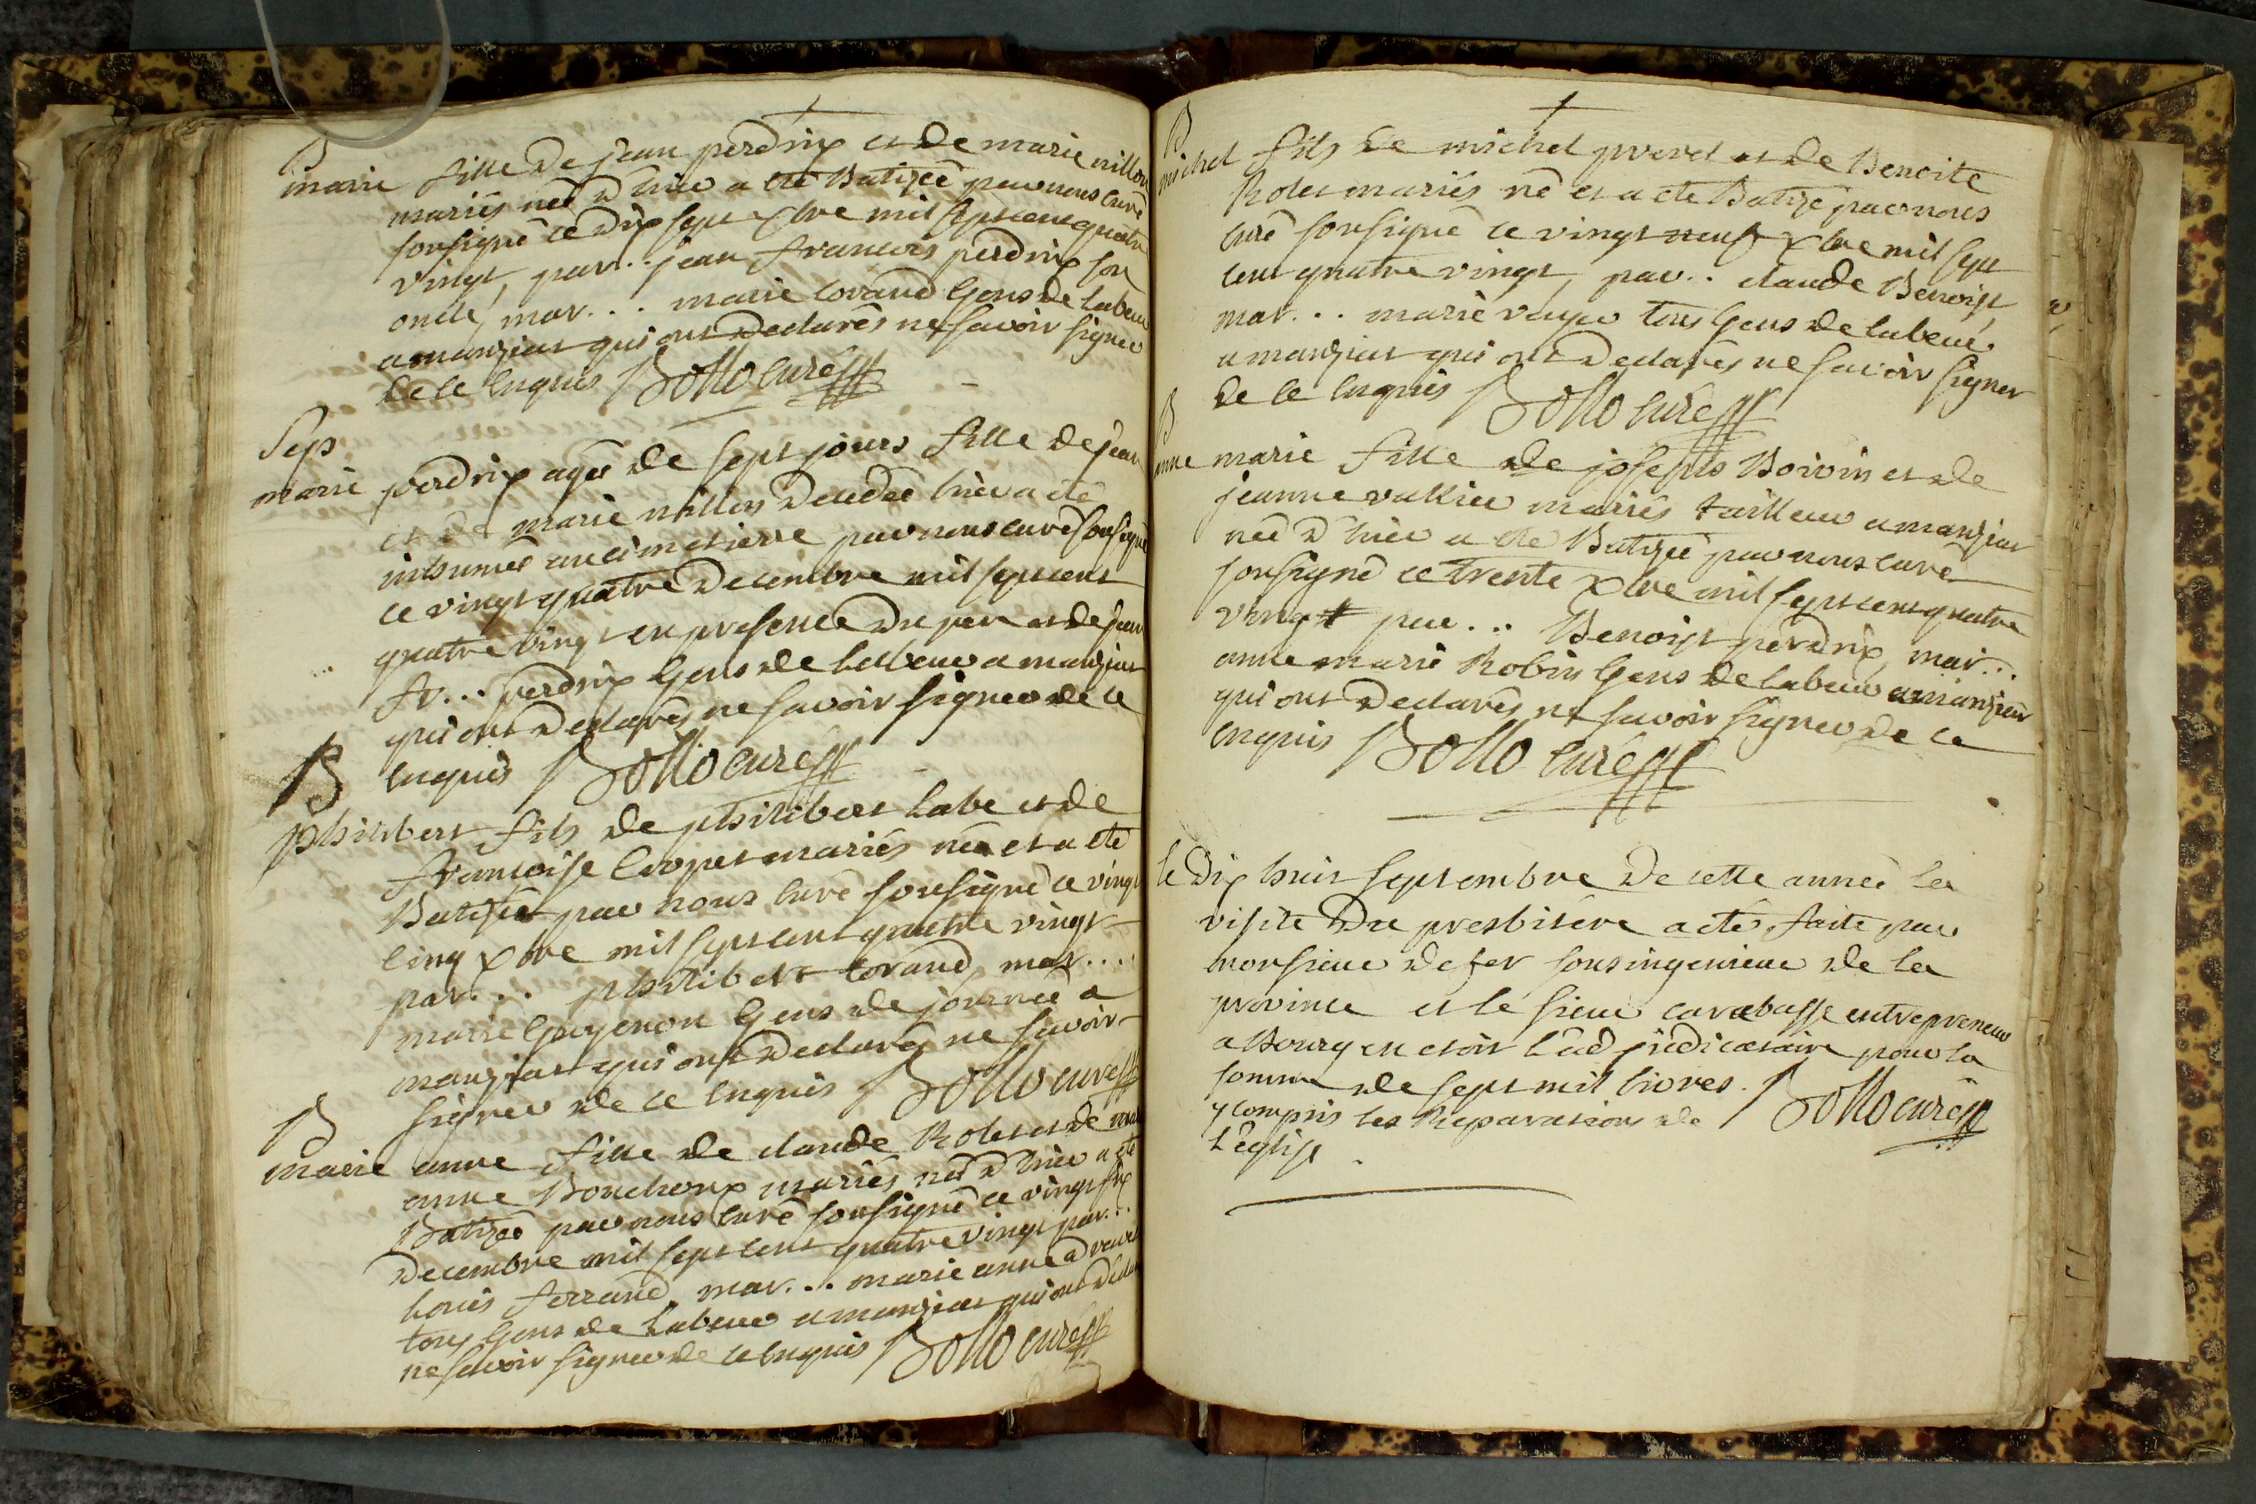 B
marie fille de jean perdrix et de marie nillon
mariés née d'hier a été Batizée par nous curé
sousigné ce dix sept xbre mil sept cent quatre
vingt, par.. jean francois perdrix son
oncle, mar... marie lorand Gens de labeur
a manziat qui ont declarés ne savoir signer
de ce enquis Bollo curé
Sep
marie perdrix agée de sept jours fille de jean
et de marie nillon decedée hier a été
inhumée au cimetierre par nous curé sousigné
ce vingt quatre decembre mil sept cent
quatre vingt en presence du pere et de jean
fr... perdrix Gens de labeur a manziat
qui ont declarés ne savoir signer de ce
enquis Bollo curé
B
philibert fils de philibert labe et de
francoise Cropet mariés née et a été
Batizée par nous curé sousigné ce vingt
cinq xbre mil sept cent quatre vingt
par... philibert lorand, mar....
marie Guyenon Gens de journée a
manziat qui ont declarés ne savoir
signer de ce enquis Bollo curé
B
marie anne fille de claude Rolet et de
anne Bouchoux mariés née d'hier a été
Batizée par nous curé sousigné ce vingt six
decembre mil sept cent quatre vingt par...
louis ferrand, mar... marie anne
tous Gens de labeur a manziat qui ont
ne savoir signer de ce enquis Bollo curé
B
michel fils de michel pvret et de Benoite
Rolet mariés né et a été Batizé par nous
curé sousigné ce vingt neuf xbre mil sept
cent quatre vingt, par.. claude Benoist,
mar... marie tous Gens de labeur
a manziat qui ont declarés ne savoir signer
de ce enquis Bollo curé
B
anne marie fille de josephs Boivin et de
jeanne vallier mariés tailleur a manziat
née d'hier a été Batizée par nous curé
sousigné ce trente xbre mil sept cent quatre
vingt par... Benoist perdrix, mar...
anne marie Robin Gens de labeur a manziat
qui ont declarés ne savoir signer de ce
enquis Bollo curé
le dix huit septembre de cette année la
visite du presbitére a été faite par
monsieur defer sousingenieur de la
province et le sieur carabasse entrepreneur
a Bourg en etoit l'adjudicataire pour la
somme de sept mil livres. Bollo curé
y compris les Reparations de
l'église